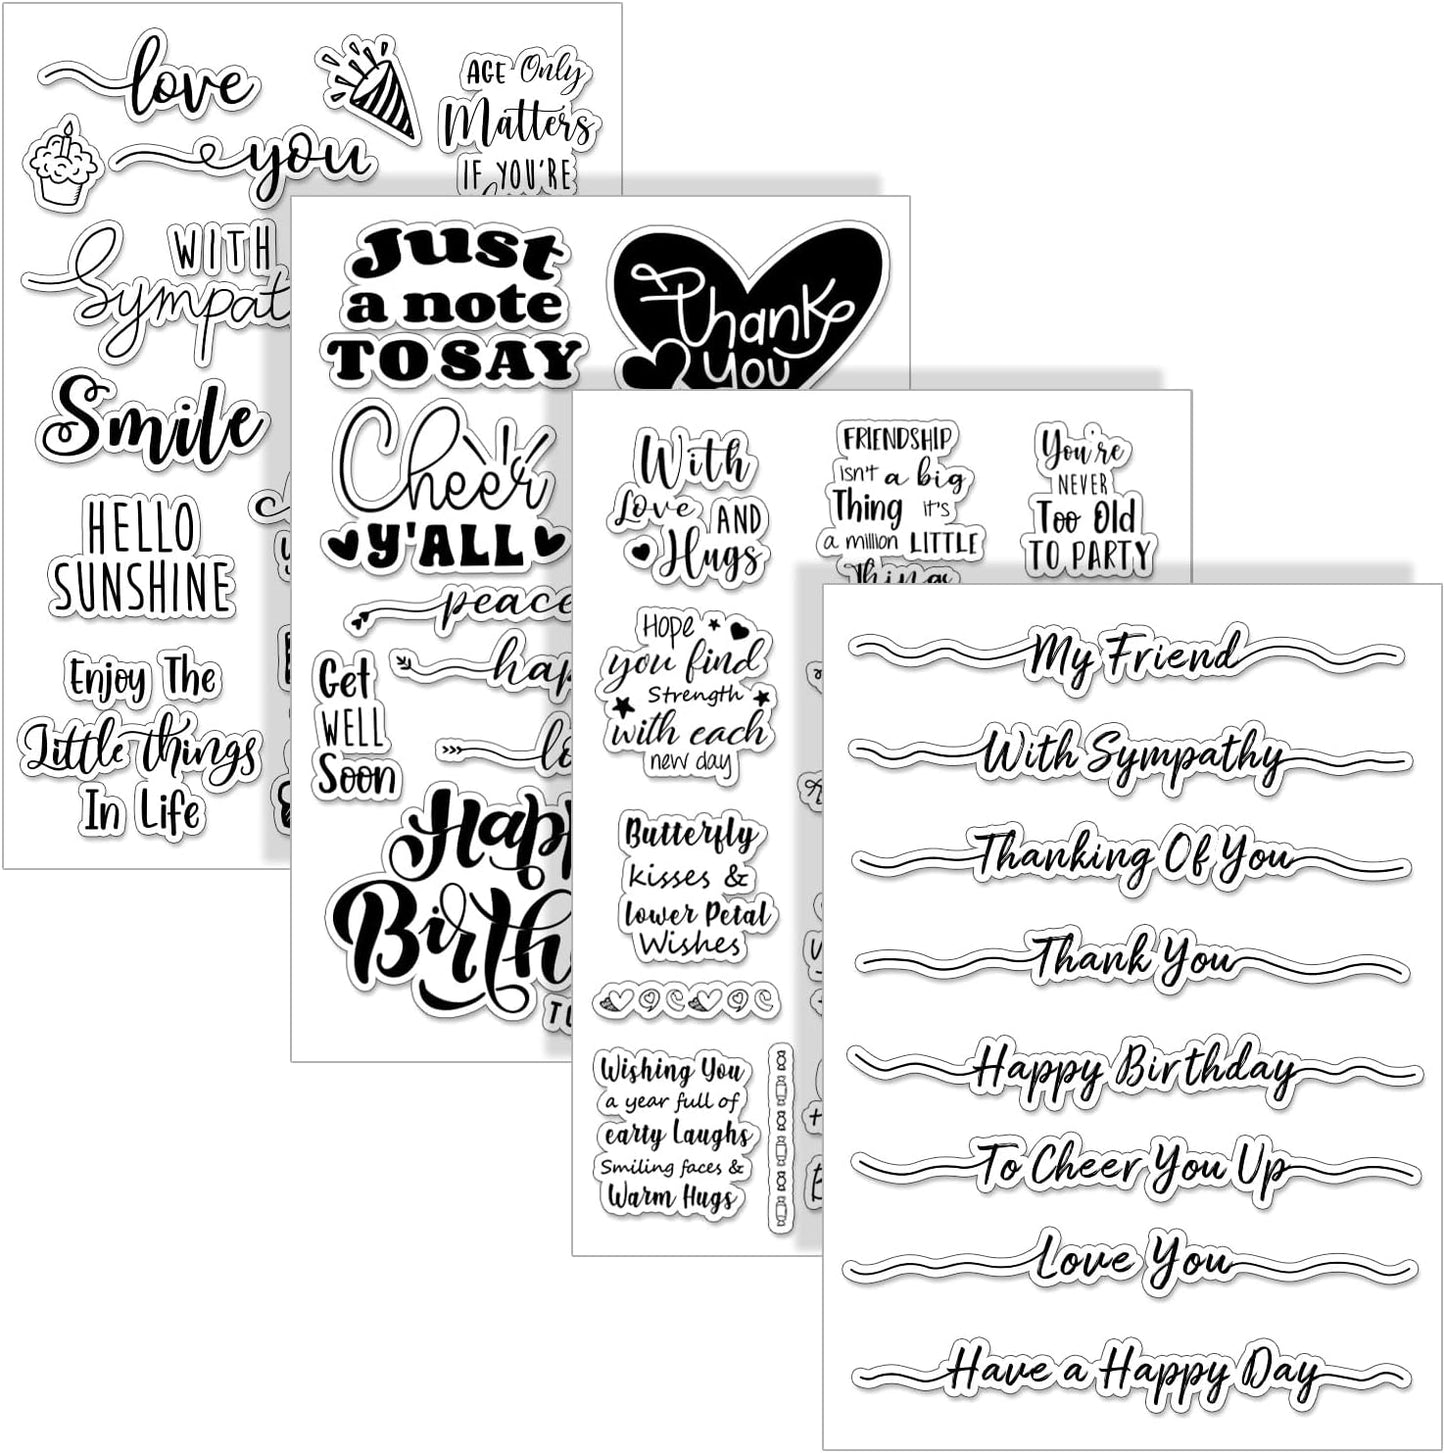 love
you
AGE Only
Matters
IF YOU'RE
WITH
Smile
HELLO
SUNSHINE
Enjoy The
Little things
In Life
Just
a note
TO SAY
Thank
you
Cheer
Y'ALL
peace
Get
WELL
Soon
With
Love AND
Hugs
FRIENDSHIP
isn't a big
Thing it's
a million LITTLE
Things
You're
NEVER
Too Old
TO PARTY
Hope
you find
Strength
with each
new day
Butterfly
kisses &
lower Petal
Wishes
Wishing You
a year full of
earty Laughs
Smiling faces &
Warm Hugs
My Friend
With Sympathy
Thanking Of You
Thank You
Happy Birthday
To Cheer You Up
Love You
Have a Happy Day